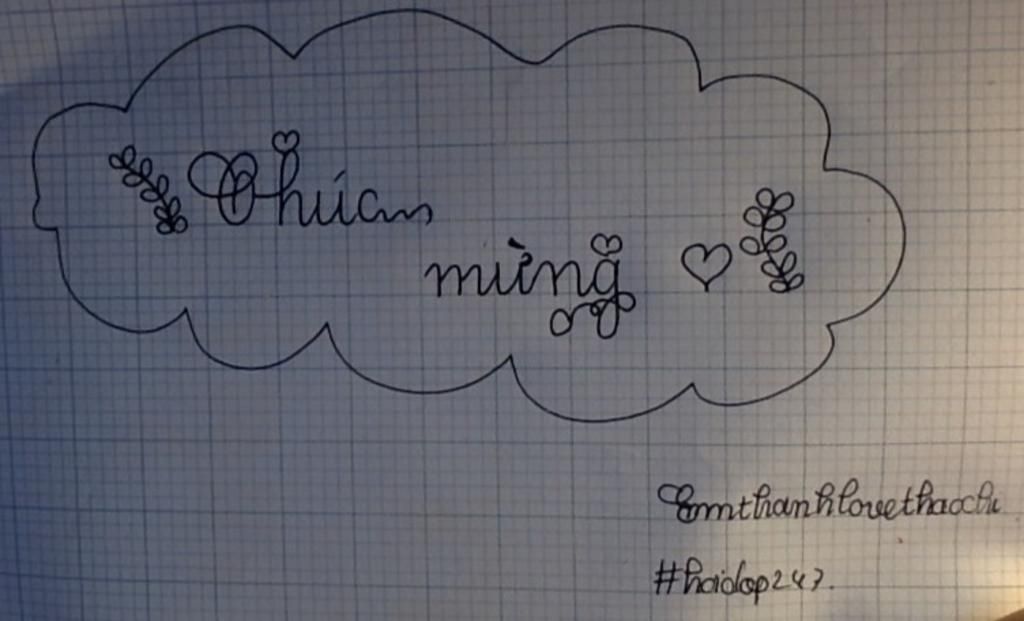 Chúc
mừng
Emthanhlovethaochi
#hoidap247.